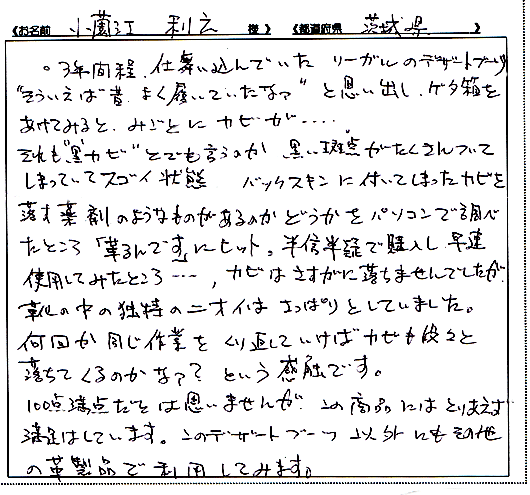 《お名前 小薗江 利之 様》 《都道府県 茨城県 》
。3年間程、仕舞い込んでいた リーガルのデザートブーツ
"そういえば昔、よく履いていたなァ" と思い出し、ゲタ箱を
あけてみると、みごとに カビが‥‥
それも"黒カビ"とでも言うのか 黒い斑点がたくさんついて
しまっていてスゴイ状態 バックスキンに付いてしまったカビを
落す薬剤のようなものがあるのかどうかをパソコンで調べ
たところ「革るんです」にヒット。半信半疑で購入し 早速
使用してみたところ‥‥、カビはさすがに落ちませんでしたが
靴の中の独特のニオイは さっぱりとしていました。
何回か同じ作業を くり返していけばカビも段々と
落ちてくるのかなァ? という感触です。
100点満点だとは思いませんが、この商品にはとりあえず
満足はしています。このデザートブーツ以外にもその他
の革製品で利用してみます。